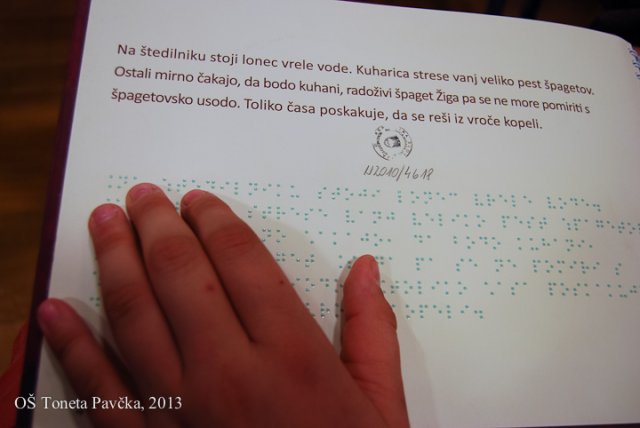 Na štedilniku stoji lonec vrele vode. Kuharica strese vanj veliko pest špagetov.
Ostali mirno čakajo, da bodo kuhani, radoživi špaget Žiga pa se ne more pomiriti s
špagetovsko usodo. Toliko časa poskakuje, da se reši iz vroče kopeli.
N2010/4618
OŠ Toneta Pavčka, 2013